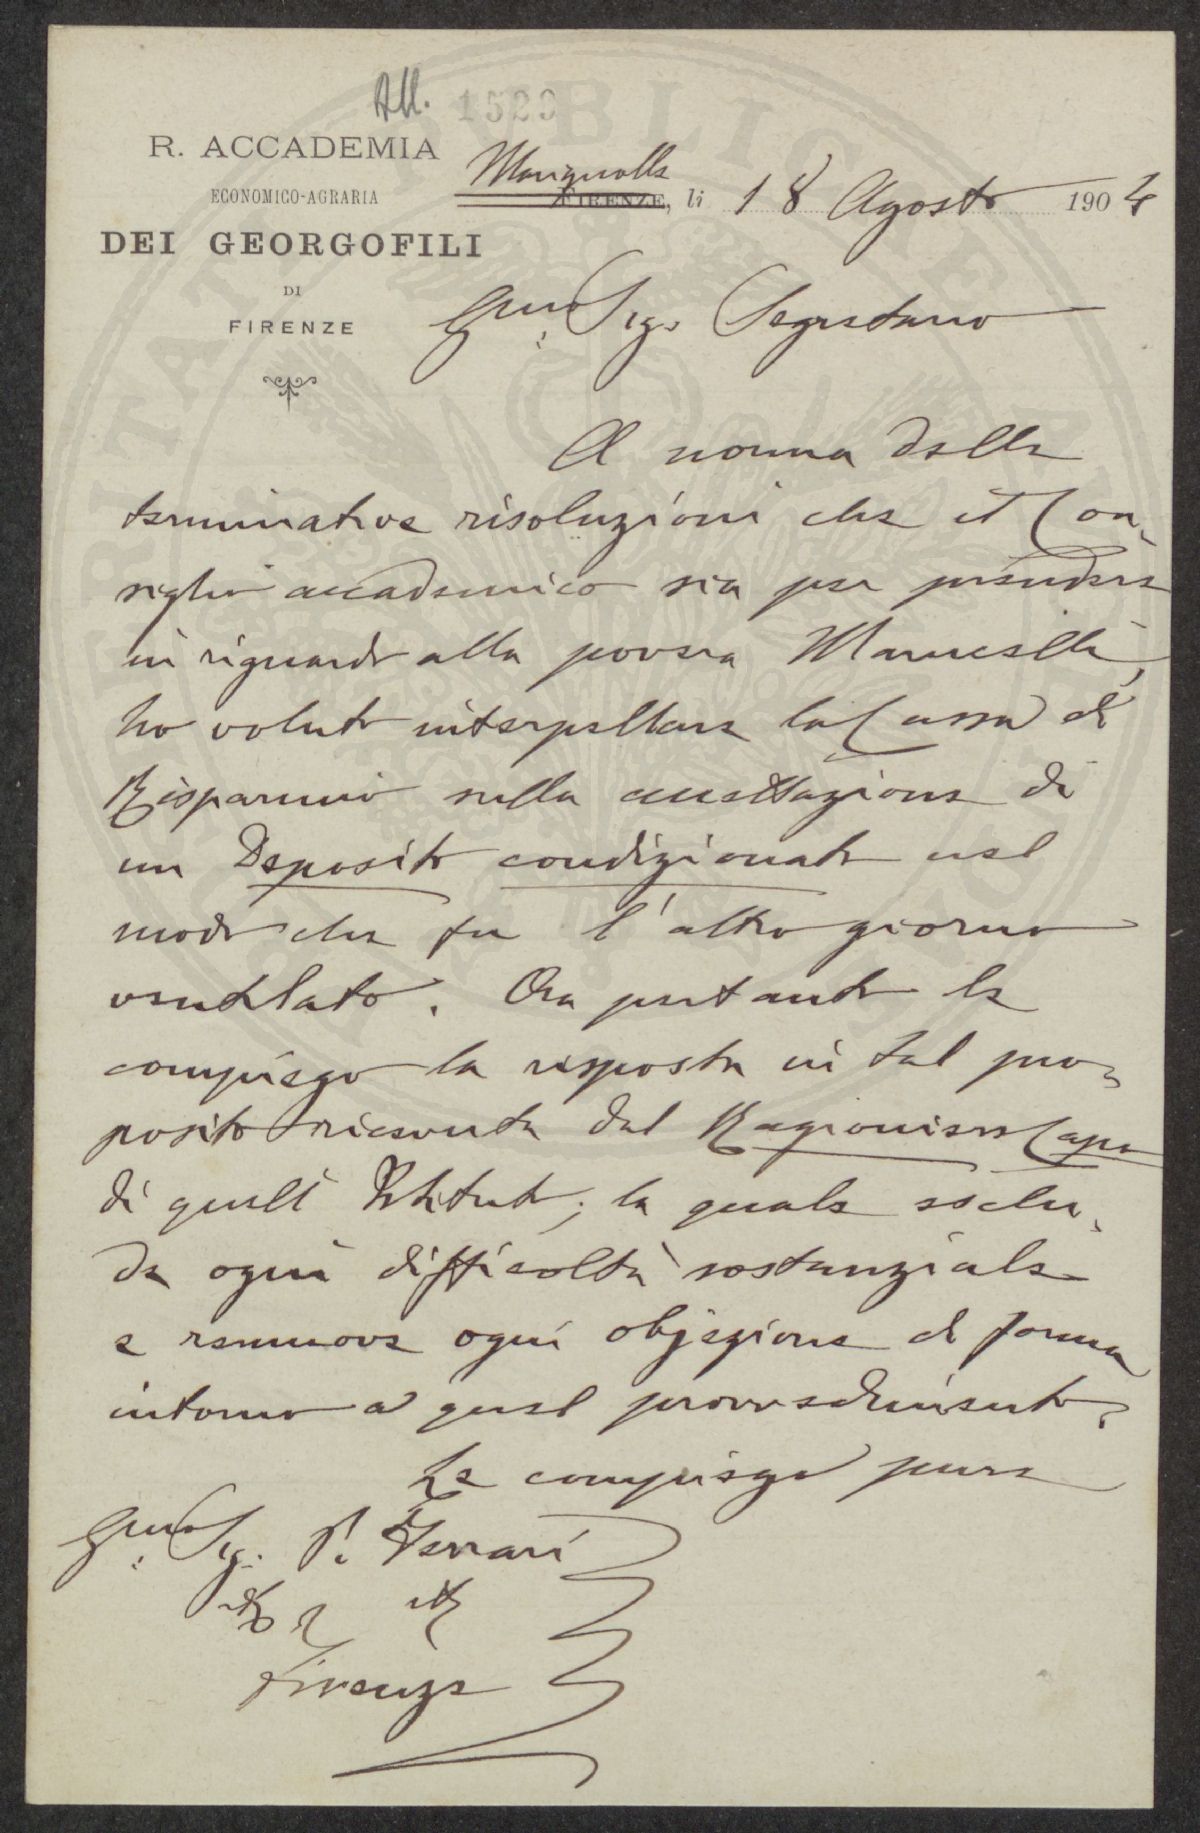 All. 1529
R. ACCADEMIA
ECONOMICO-AGRARIA
DEI GEORGOFILI
DI
FIRENZE
Marignolle
FIRENZE, li 18 Agosto 1904
Sig. Segretario
A norma delle
terminative risoluzioni che il Con-
siglio accademico sia per prendere
in riguardo alla povera
ho voluto interpellare la Cassa di
Risparmio sulla accettazione di
un Deposito condizionato nel
modo che fu l'altro giorno
ventilato. Ora pertanto le
compiego la risposta in tal pro-
posito ricevuta dal Ragioniere Capo
di quell'Istituto; la quale esclu-
de ogni difficoltà sostanziale
e remuove ogni objezione di forma
intorno a quel provvedimento.
Le compiego pure
Sig. P. Ferrari
Firenze